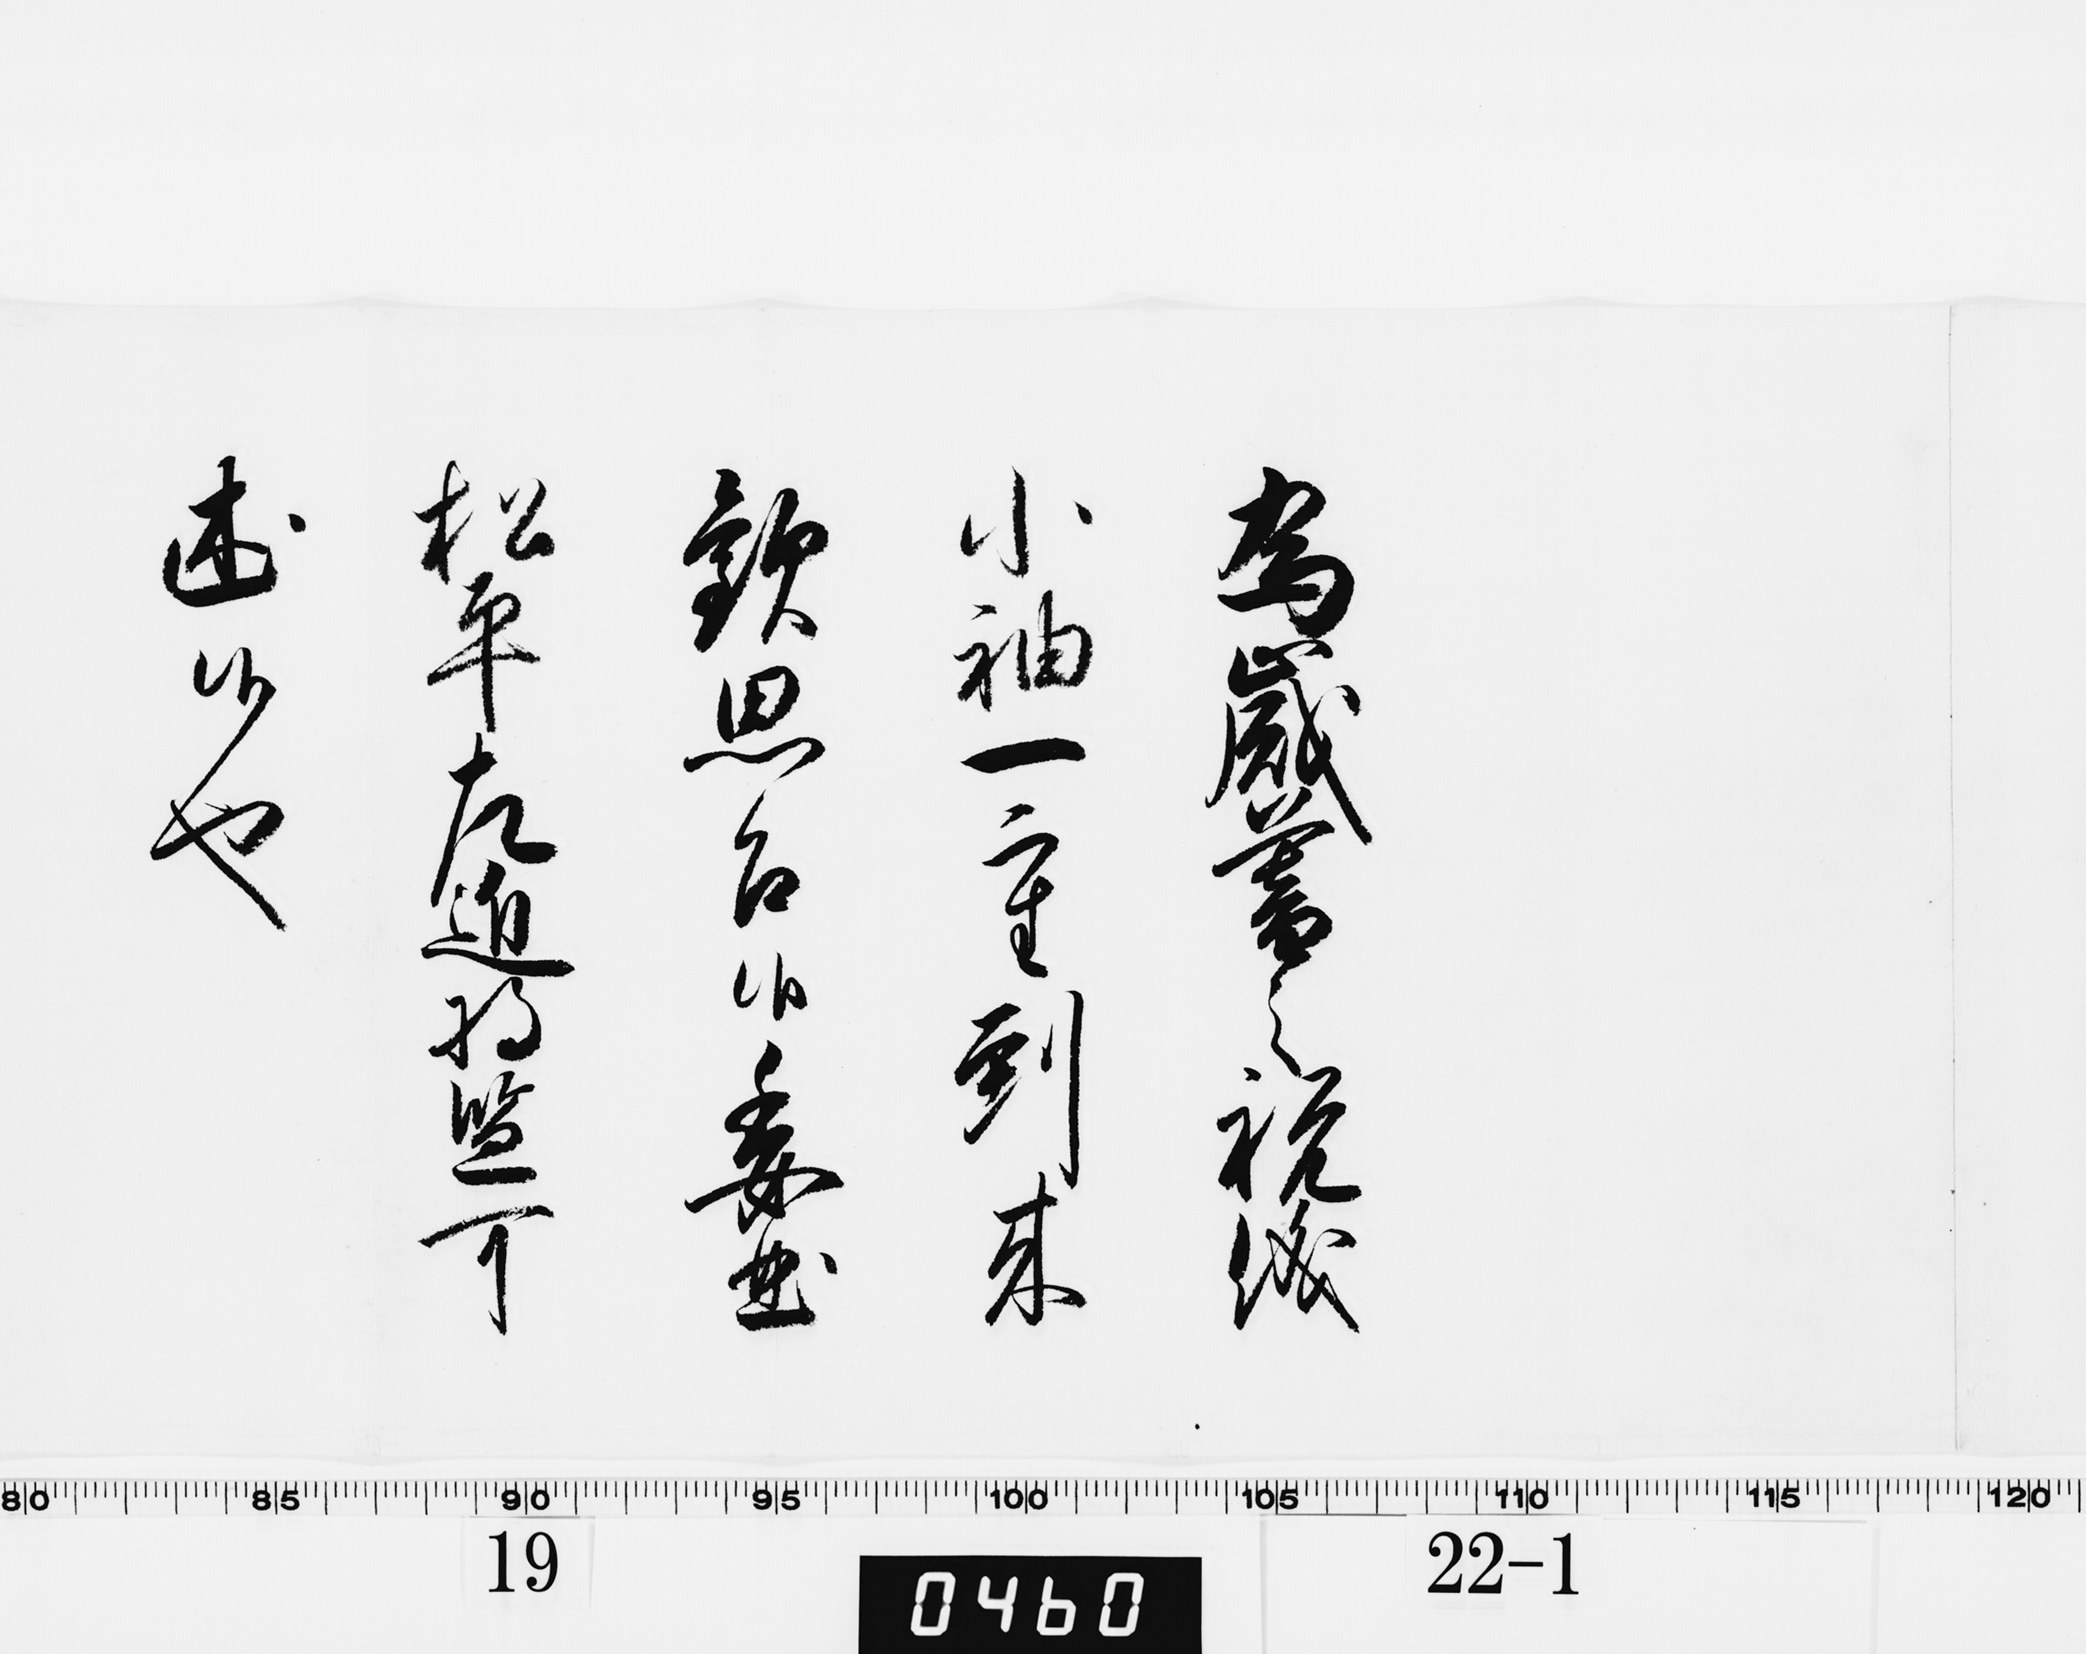 為歳暮之祝儀
小袖一重到来
歓思召候委曲
松平左近将監可
述候也
80 85 90 95 100 105 110 115 120
19
22-1
0460